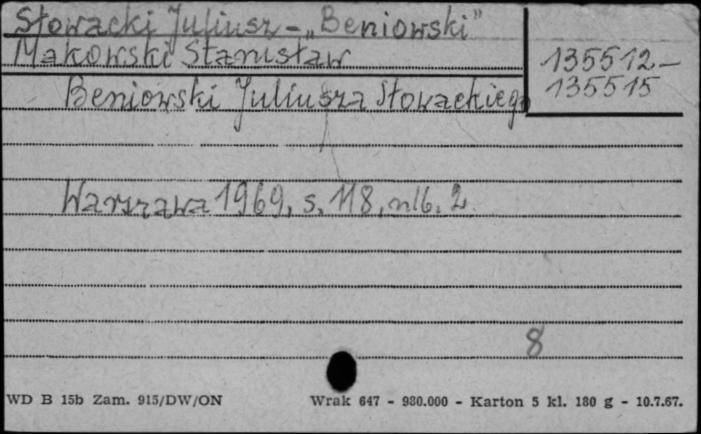 Słowacki Juliusz - „Beniowski”
Makowski Stanisław
135512-
135515
Beniowski Juliusza Słowackiego
Warszawa 1969, s. 118, nlb. 2.
8
WD B 15b Zam. 915/DW/ON
Wrak 647 - 980.000 - Karton 5 kl. 180 g - 10.7.67.